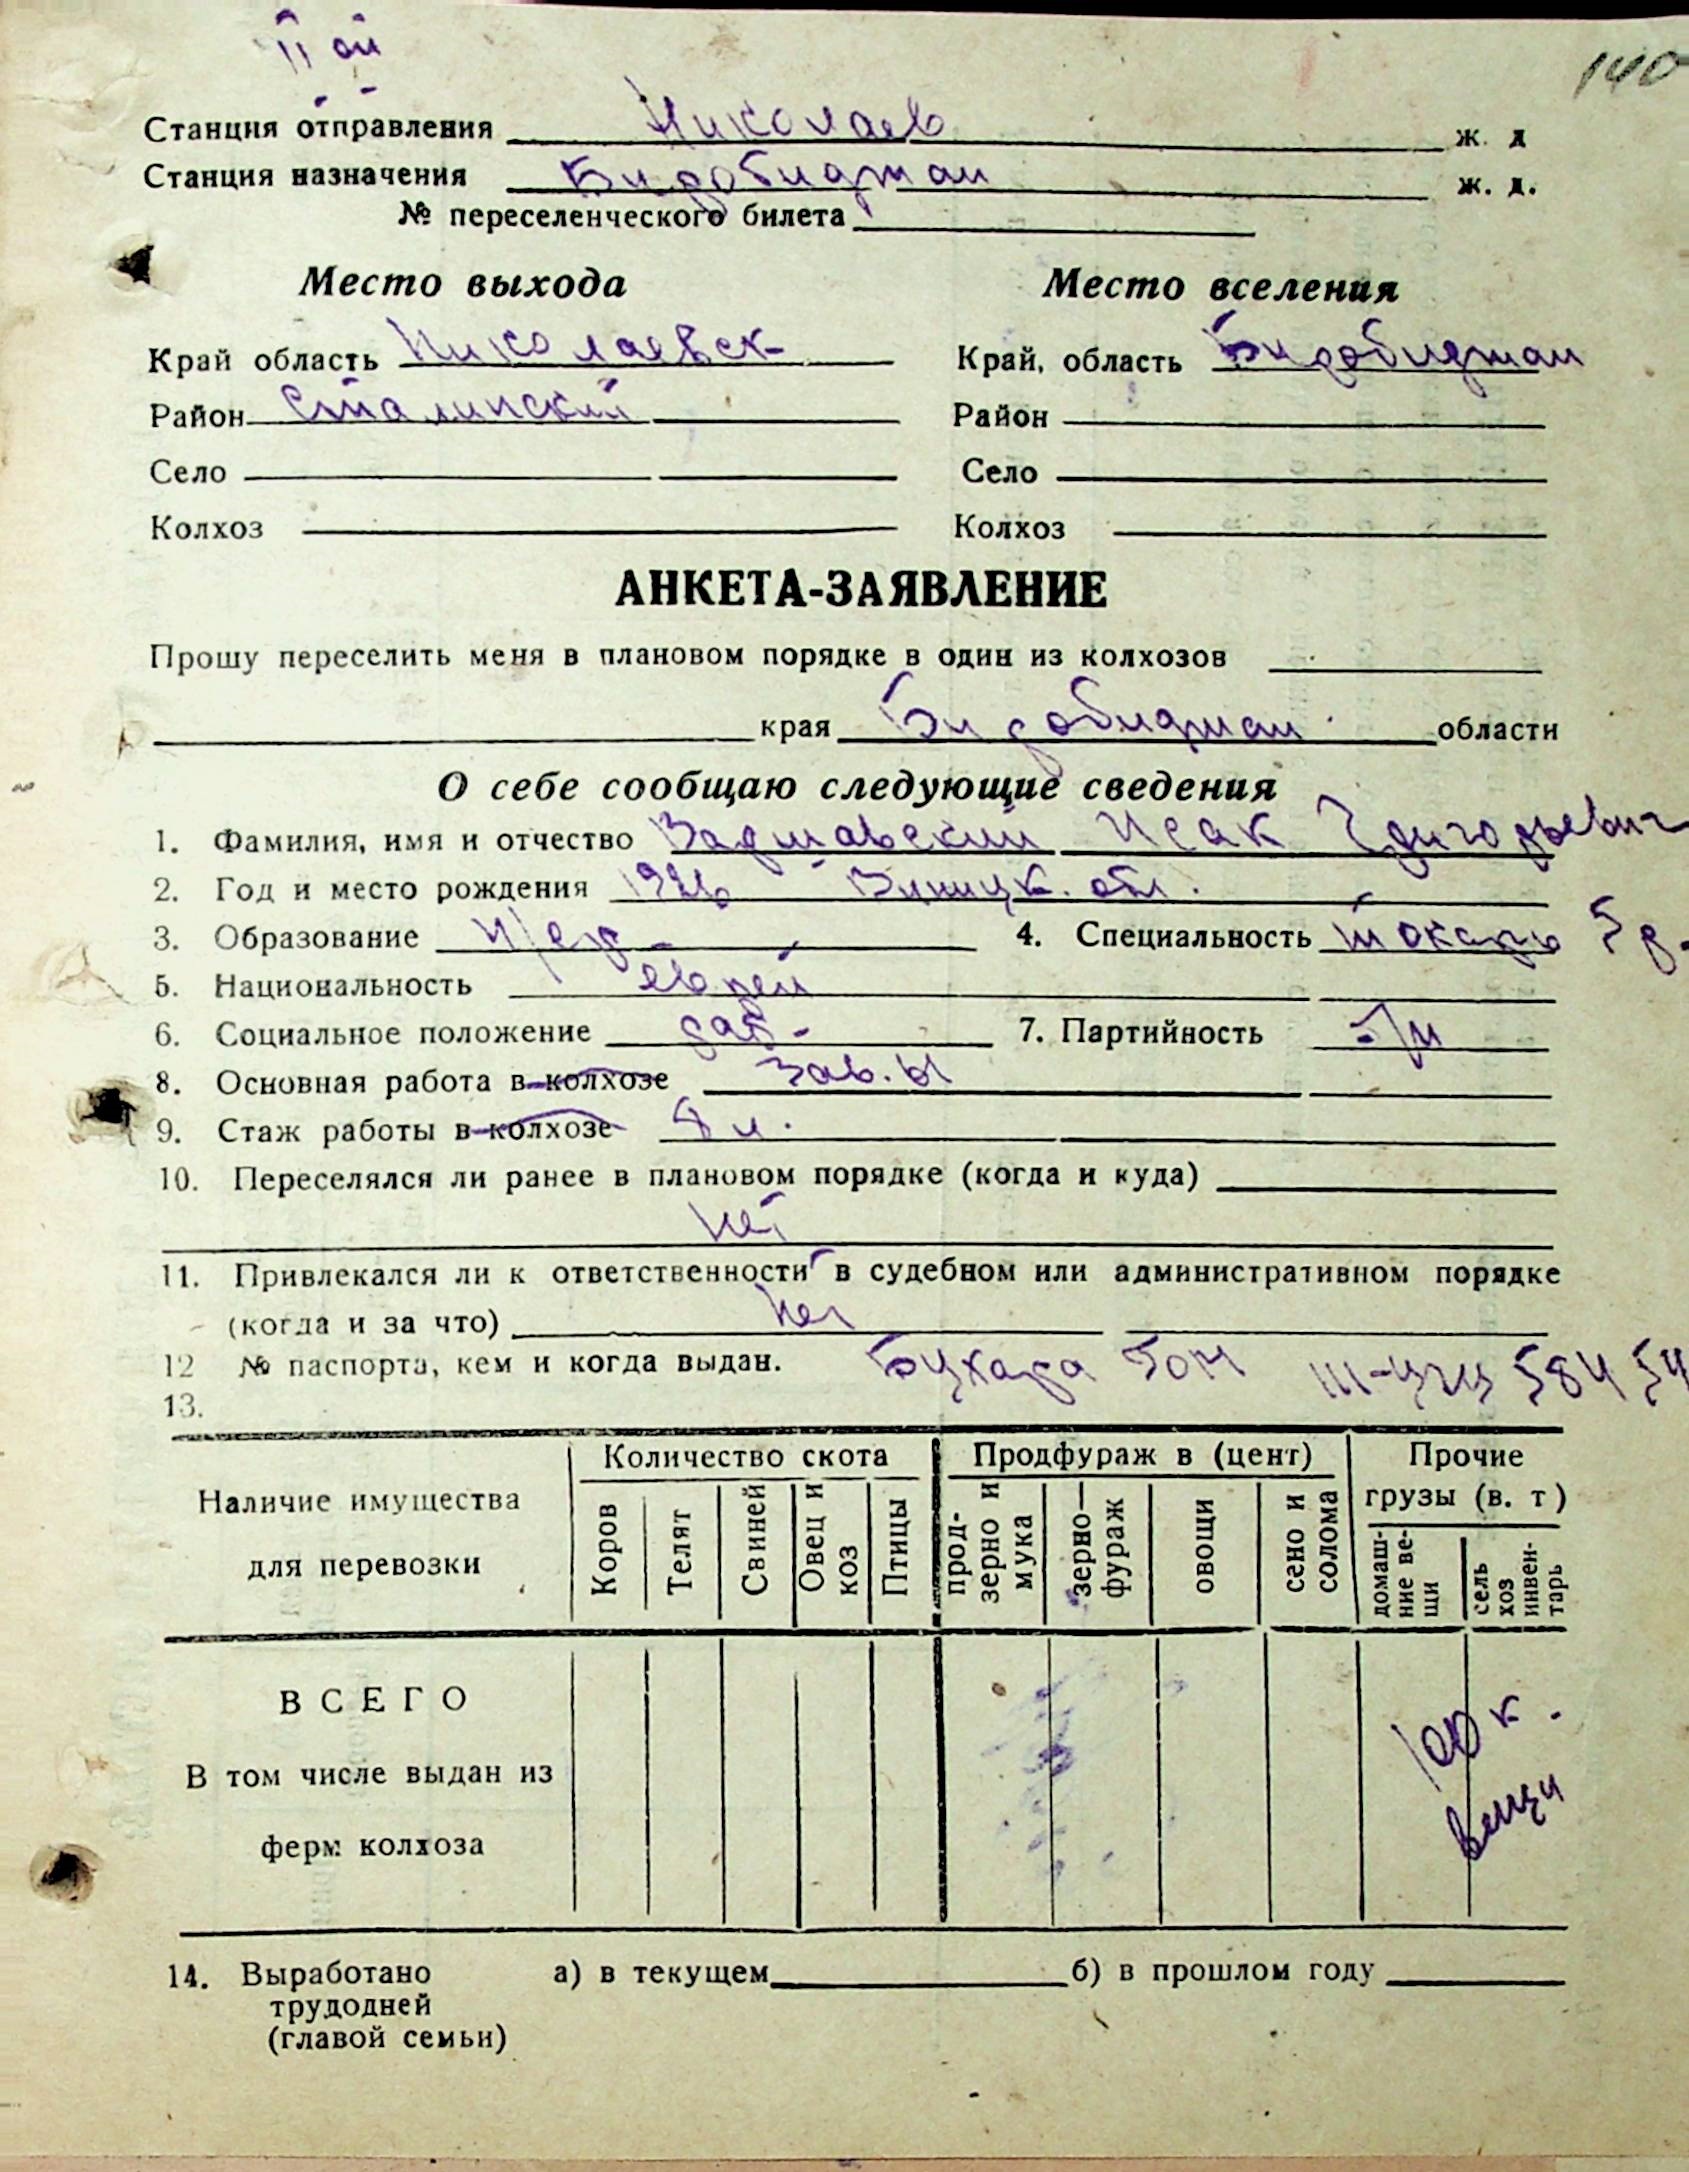 140
Станция отправления Николаев ж. д
Станция назначения Биробиджан ж. д.
№ переселенческого билета
Место выхода Место вселения
Край область Николаевск Край, область Биробиджан
Район Сталинский Район
Село Село
Колхоз Колхоз
АНКЕТА-ЗАЯВЛЕНИЕ
Прошу переселить меня в плановом порядке в один из колхозов
края Биробиджан области
О себе сообщаю следующие сведения
1. Фамилия, имя и отчество Варшавский Исак Григорьевич
2. Год и место рождения 1926 Виницк. обл.
3. Образование 4. Специальность токарь 5 р.
5. Национальность еврей
6. Социальное положение раб- 7. Партийность
8. Основная работа в колхозе зав.
9. Стаж работы в колхозе
10. Переселялся ли ранее в плановом порядке (когда и куда)
нет
11. Привлекался ли к ответственности в судебном или административном порядке
(когда и за что) нет
12 № паспорта, кем и когда выдан. Бухара ГОМ 584 54
13.
Наличие имущества для перевозки
Количество скота Продфураж в (цент) Прочие грузы (в. т)
Коров Телят Свиней Овец и коз Птицы прод-зерно и мука зерно—фураж овощи сено и солома домаш-ние ве-щи сель хоз инвен-тарь
ВСЕГО
100 к.
В том числе выдан из
вещи
ферм колхоза
14. Выработано а) в текущем б) в прошлом году
трудодней
(главой семьи)